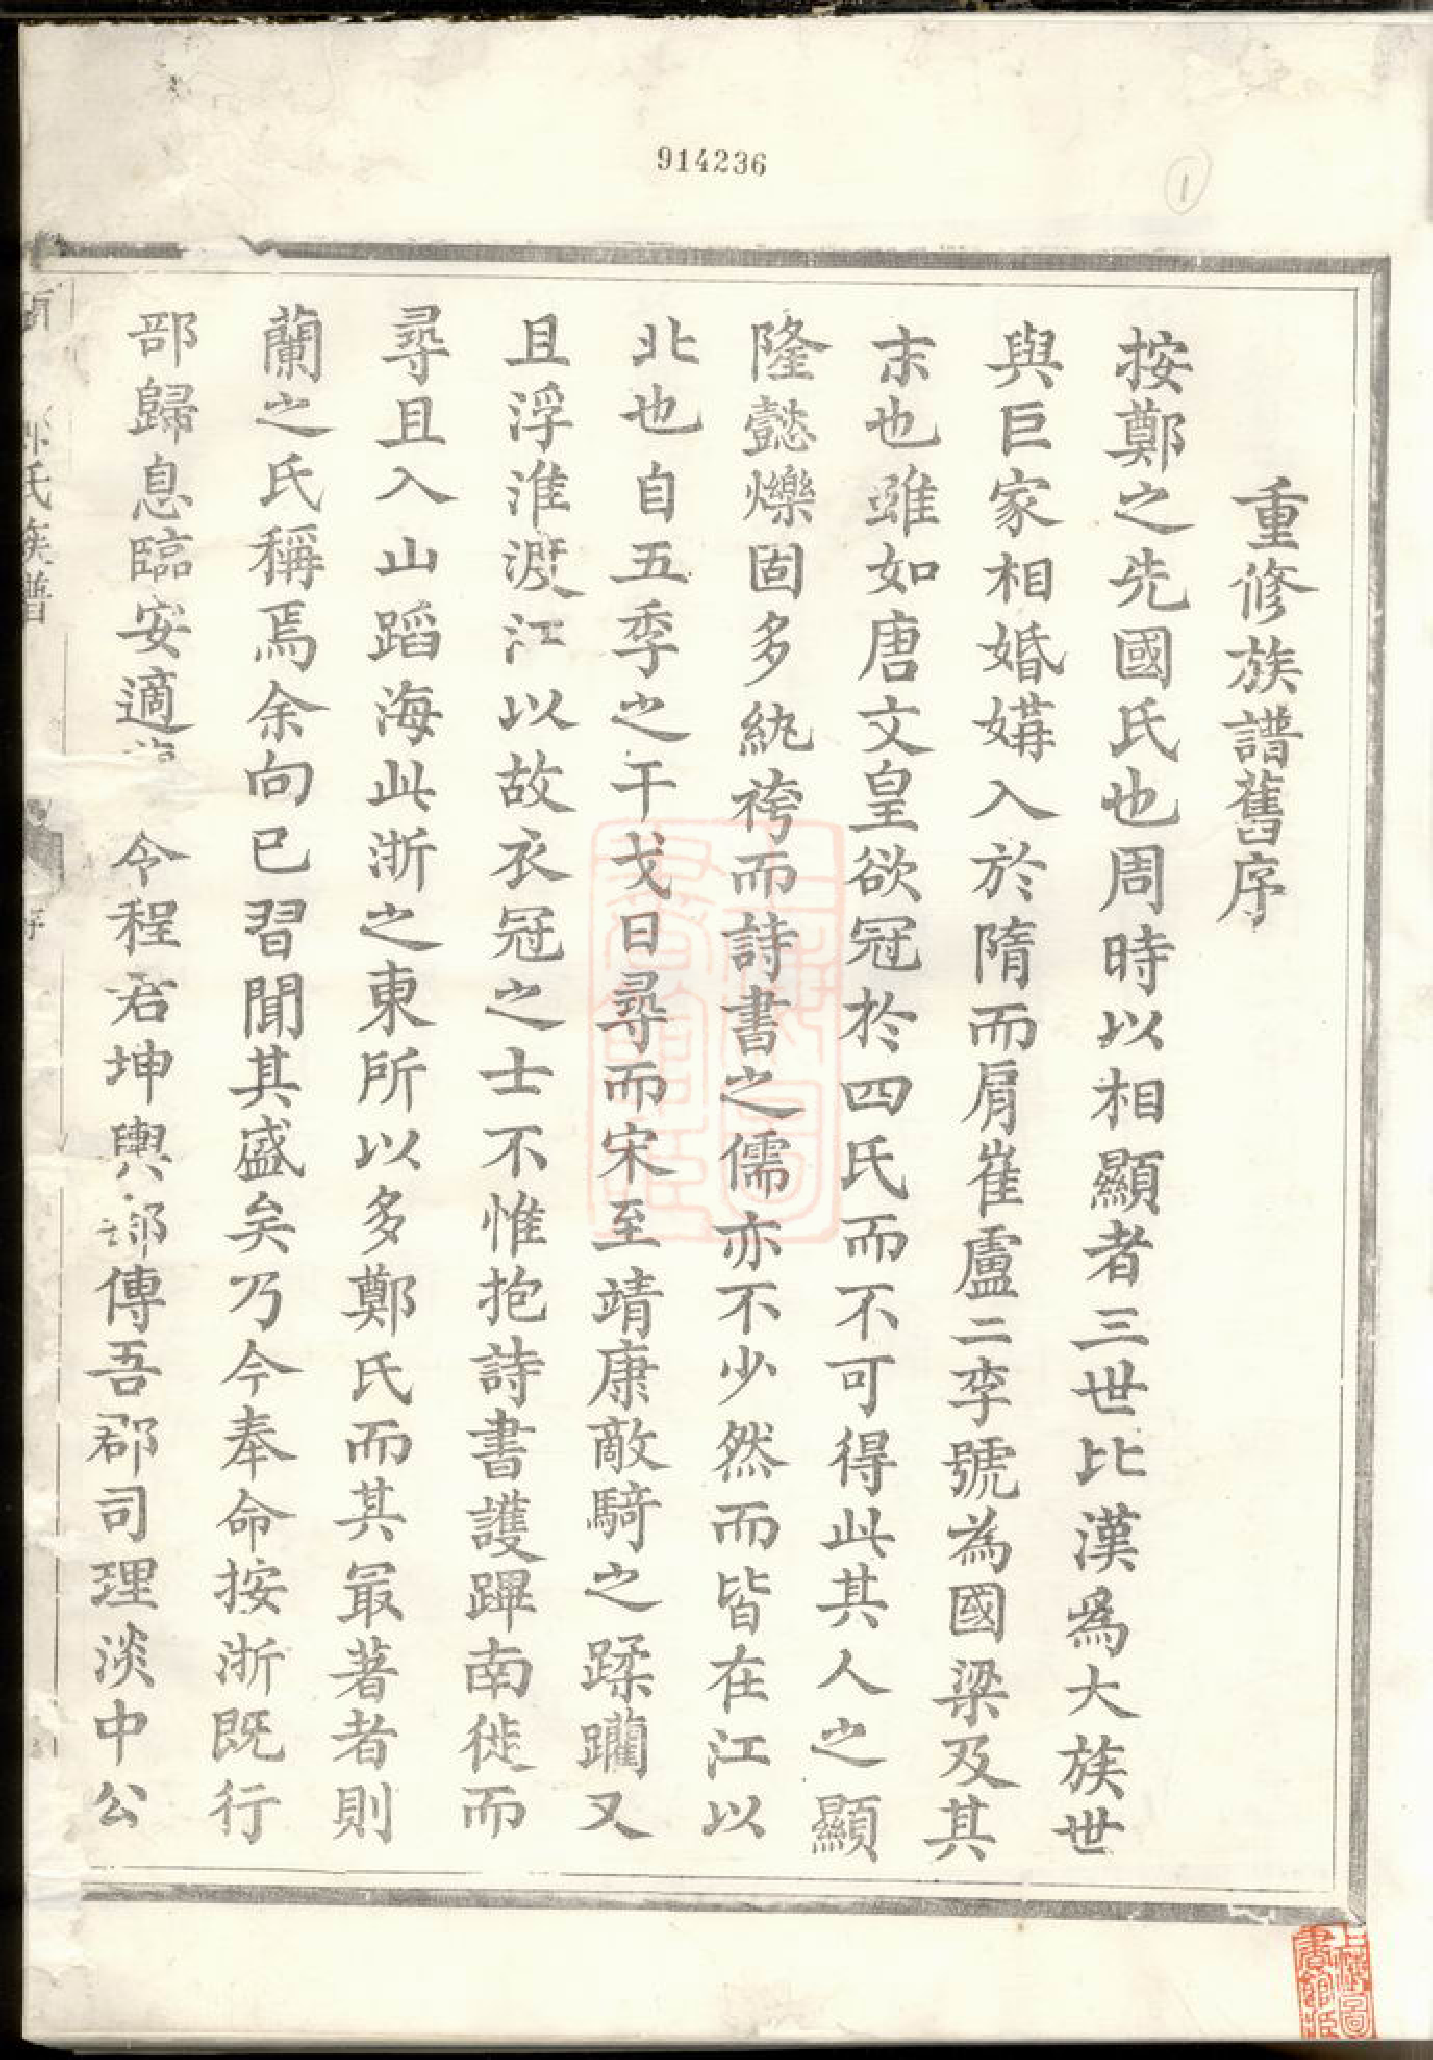 914236
1
重修族譜舊序
按鄭之先國氏也周時以相顯者三世比漢爲大族世
與巨家相婚媾入於隋而肩崔盧二李號為國梁及其
末也雖如唐文皇欲冠於四氏而不可得此其人之顯
隆懿爍固多紈袴而詩書之儒亦不少然而皆在江以
北也自五季之干戈日尋而宋至靖康敵騎之蹂躪又
且浮淮渡江以故衣冠之士不惟抱詩書護蹕南徙而
尋且入山蹈海此浙之東所以多鄭氏而其最著者則
蘭之氏稱焉余向已習聞其盛矣乃今奉命按浙既行
部歸息臨安適 令程君坤輿郵傳吾郡司理淡中公
氏族譜
序
上海圖書館藏